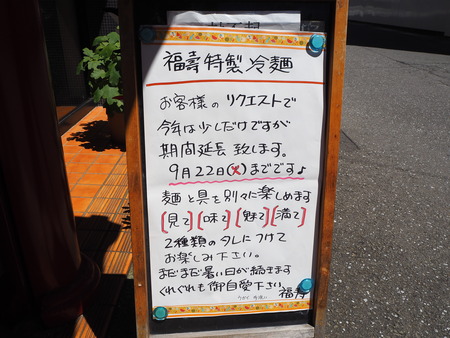 福壽特製冷麺
お客様のリクエストで
今年は少しだけですが
期間延長致します。
9月22日(火)までです♪
麺と具を別々に楽しめます
[見て][味て][魅て][満て]
2種類のタレにつけて
お楽しみ下さい。
まだまだ暑い日が続きます
くれぐれも御自愛下さい
福寿